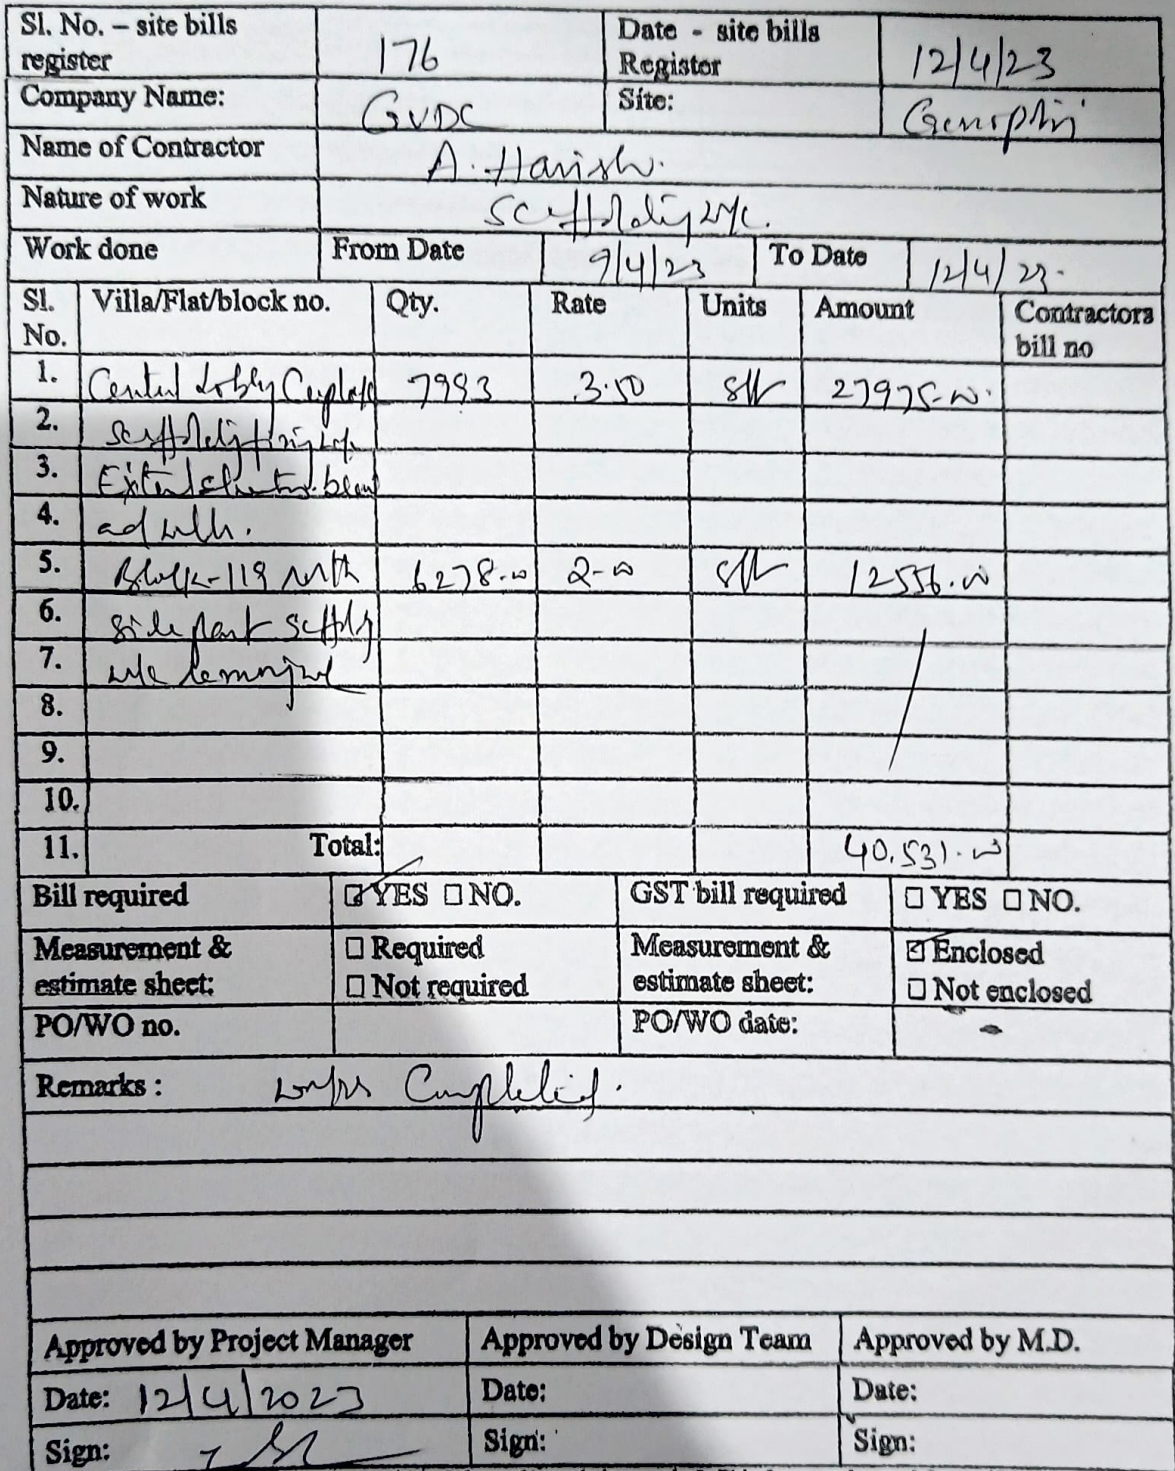 Sl. No. – site bills register 176 Date - site bills Register 12/4/23
Company Name: GVDC Site:
Name of Contractor A. Harish.
Nature of work
Work done From Date 9/4/23 To Date 12/4/23.
Sl. No. Villa/Flat/block no. Qty. Rate Units Amount Contractors bill no
1. Central Lobby 7993 3.50 sft 27975-00.
2.
3. beam
4. and
5. Block-119 north 6278-00 2-00 sft 12556.00
6. side part
7.
8.
9.
10.
11. Total: 40,531.00
Bill required ☑ YES ☐ NO. GST bill required ☐ YES ☐ NO.
Measurement & estimate sheet: ☐ Required ☐ Not required Measurement & estimate sheet: ☑ Enclosed ☐ Not enclosed
PO/WO no. PO/WO date: -
Remarks :
Approved by Project Manager Approved by Design Team Approved by M.D.
Date: 12/4/2023 Date: Date:
Sign: Sign: Sign: